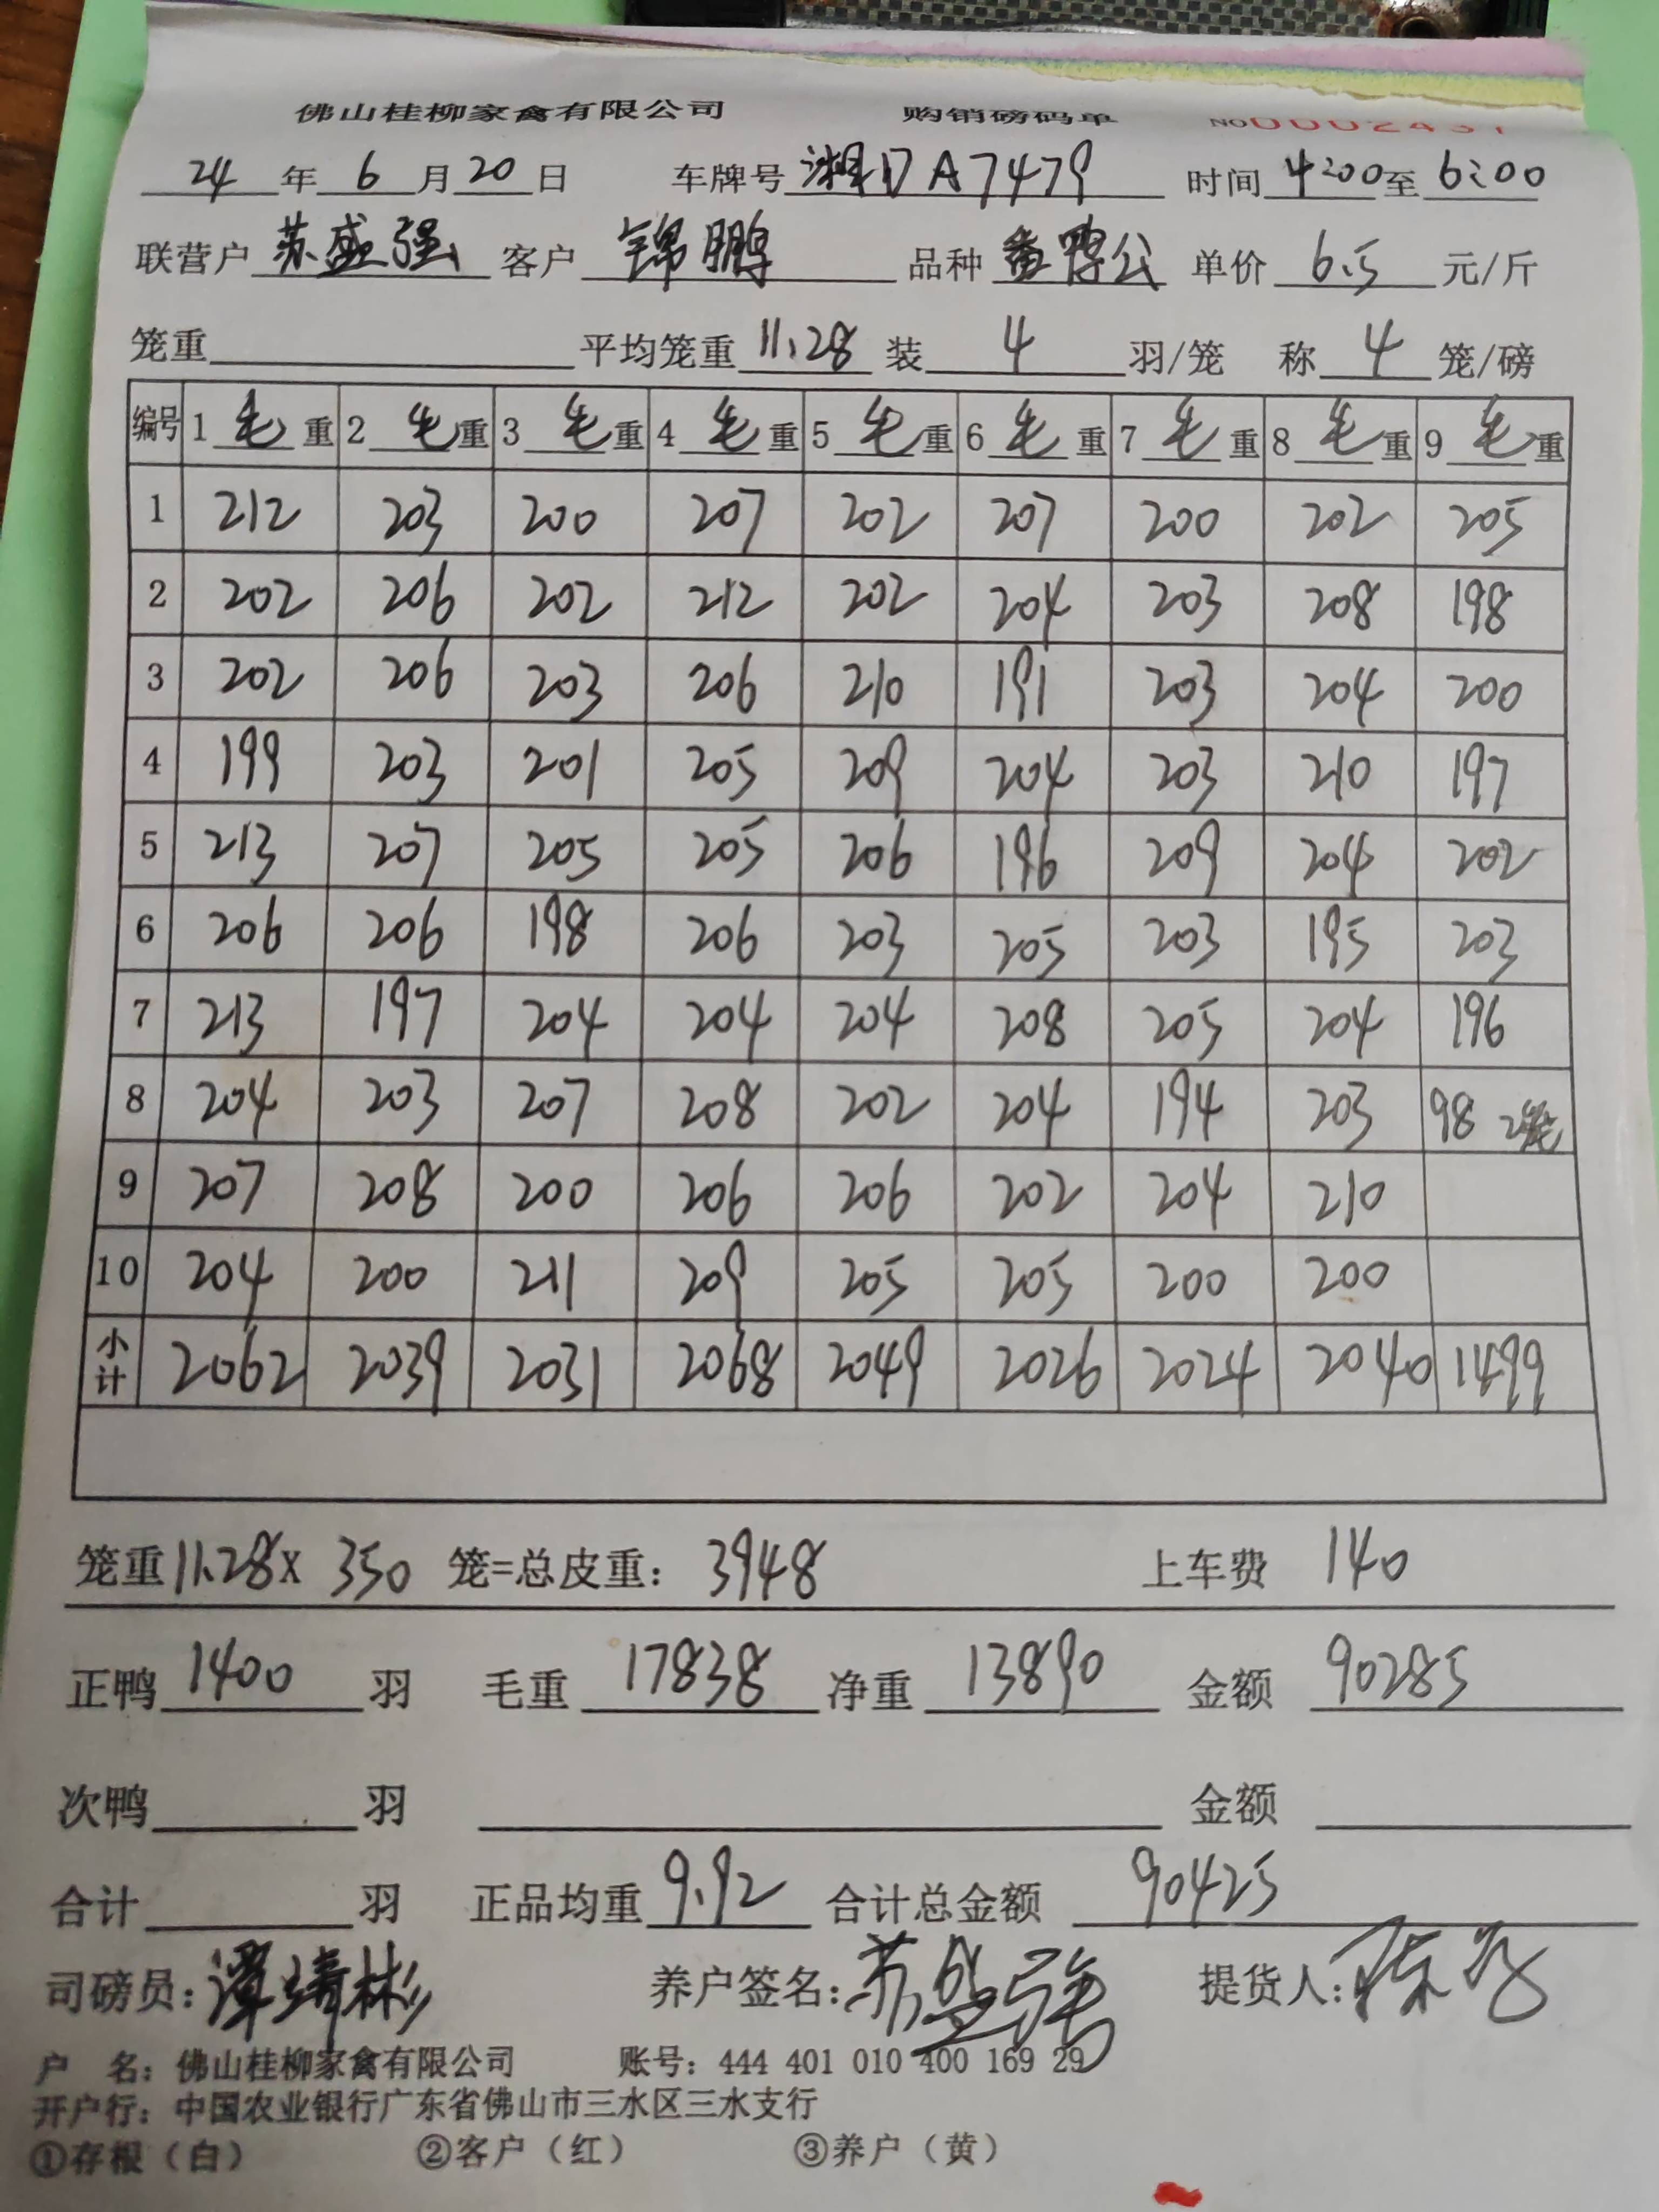 佛山桂柳家禽有限公司 购销磅码单 NO 0002437
24 年 6 月 20 日 车牌号 湘DA7479 时间 4:00 至 6:00
联营户 苏盛强 客户 锦鹏 品种 番鸭公 单价 6.5 元/斤
笼重 平均笼重 11.28 装 4 羽/笼 称 4 笼/磅
编号 1 毛 重 2 毛 重 3 毛 重 4 毛 重 5 毛 重 6 毛 重 7 毛 重 8 毛 重 9 毛 重
1 212 203 200 207 202 207 200 202 205
2 202 206 202 212 202 204 203 208 198
3 202 206 203 206 210 191 203 204 200
4 199 203 201 205 209 204 203 210 197
5 213 207 205 205 206 196 209 204 202
6 206 206 198 206 203 205 203 195 203
7 213 197 204 204 204 208 205 204 196
8 204 203 207 208 202 204 194 203 98 2笼
9 207 208 200 206 206 202 204 210
10 204 200 211 209 205 205 200 200
小计 2062 2039 2031 2068 2049 2026 2024 2040 1499
笼重 11.28 X 350 笼=总皮重: 3948 上车费 140
正鸭 1400 羽 毛重 17838 净重 13890 金额 90285
次鸭 羽 金额
合计 羽 正品均重 9.92 合计总金额 90425
司磅员: 谭靖彬 养户签名: 苏盛强 提货人:
户 名: 佛山桂柳家禽有限公司 账号: 444 401 010 400 169 29
开户行: 中国农业银行广东省佛山市三水区三水支行
①存根（白） ②客户（红） ③养户（黄）